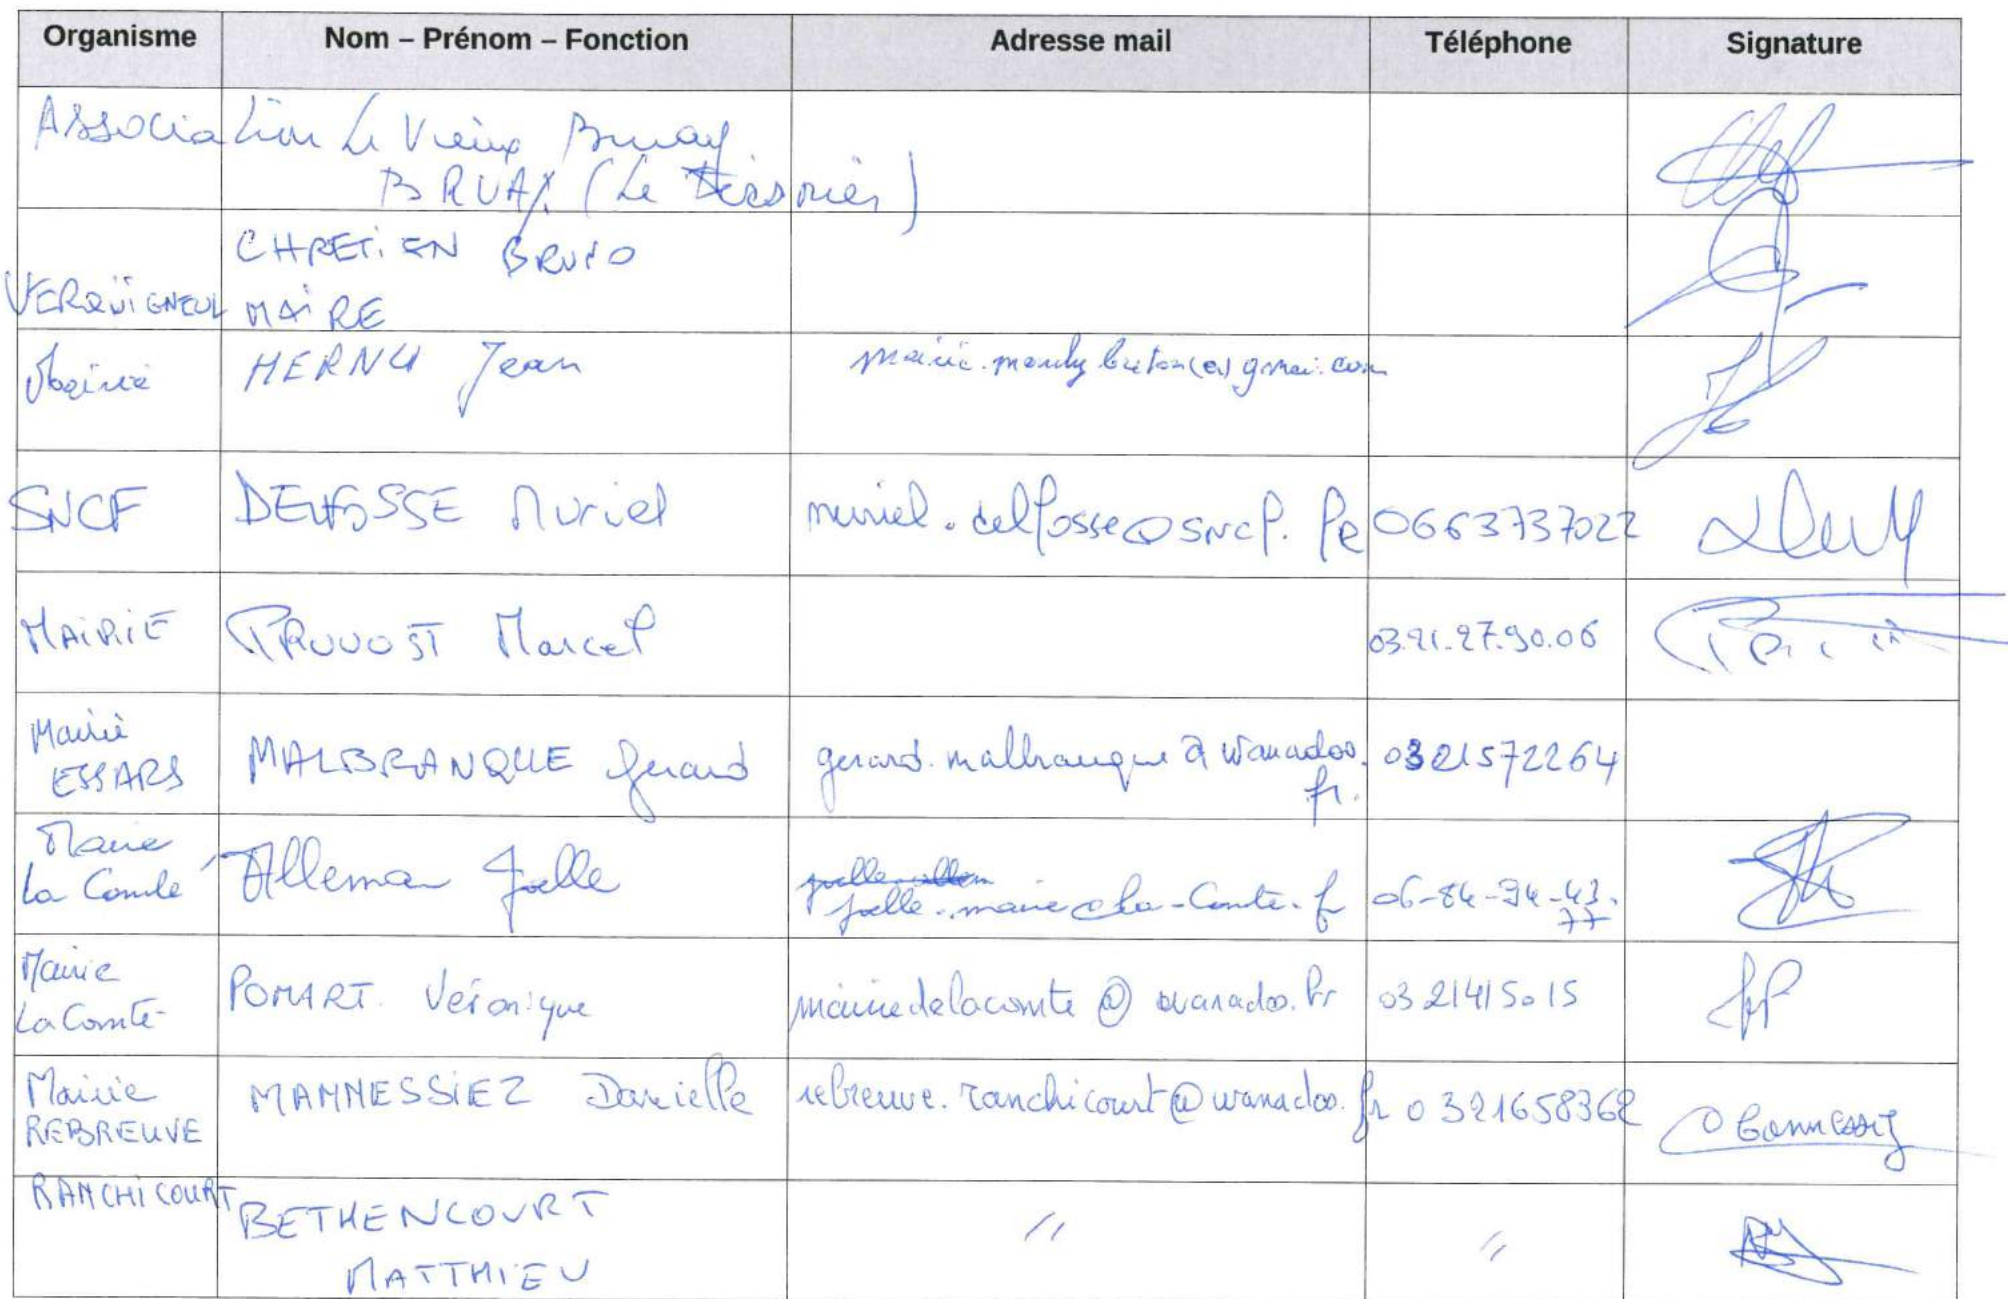 Organisme Nom – Prénom – Fonction Adresse mail Téléphone Signature
Association Le Vieux Bruay
BRUAY (Le
CHRETIEN BRUNO
VERQUIGNEUL MAIRE
Mairie HERNU Jean
SNCF DELFOSSE Muriel muriel.delfosse@sncf.fr 0663737022
MAIRIE PRUVOST Marcel 03.21.27.90.06
Mairie
ESSARS MALBRANQUE Gerard gerard.malbranque@wanadoo. 0321572264
fr.
Mairie
La Comté Alleman Joelle joelle.mairie@la-Comte.fr 06-84-94-43.
77
Mairie
La Comté POMART Véronique mairiedelacomte@wanadoo.fr 0321415015
Mairie MANNESSIEZ Danielle rebreuve.ranchicourt@wanadoo.fr 0321658362
REBREUVE
RANCHICOURT BETHENCOURT // //
MATTHIEU